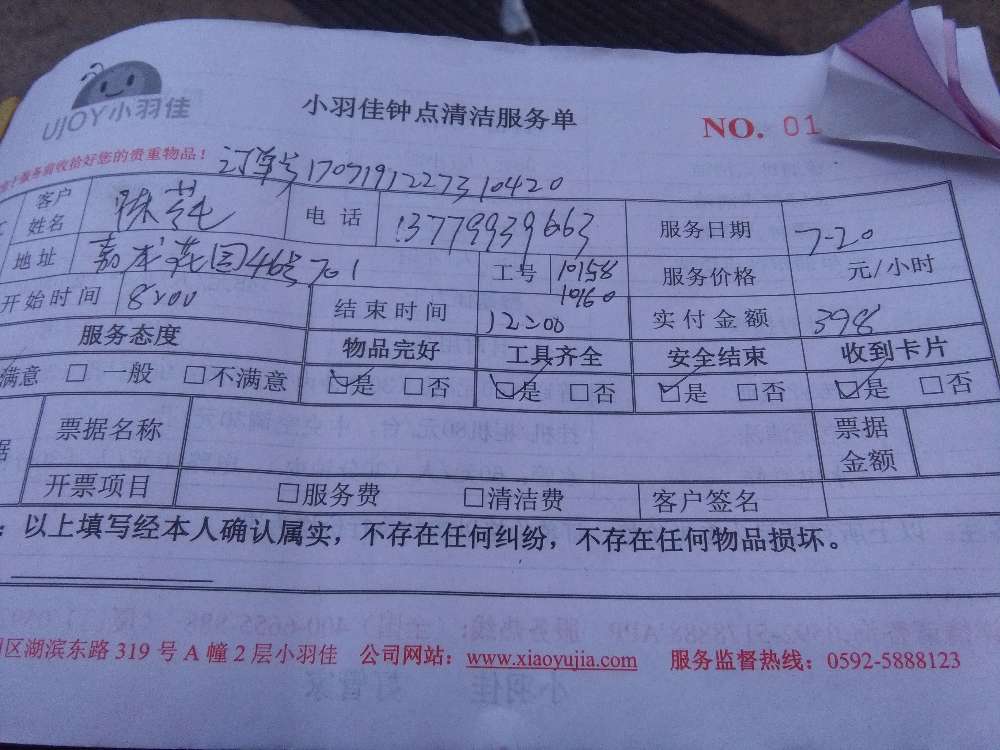 UJOY小羽佳
小羽佳钟点清洁服务单
NO. 01
服务前收拾好您的贵重物品！
订单号1707191227310420
客户姓名 陈 电话 13779939663 服务日期 7-20
地址 嘉龙花园46号701 工号 10158 10160 服务价格 元/小时
开始时间 8:00 结束时间 12:00 实付金额 398
服务态度 物品完好 工具齐全 安全结束 收到卡片
满意 □ 一般 □不满意 ☑是 □否 ☑是 □否 ☑是 □否 ☑是 □否
据 票据名称 票据金额
开票项目 □服务费 □清洁费 客户签名
：以上填写经本人确认属实，不存在任何纠纷，不存在任何物品损坏。
区湖滨东路 319 号 A 幢 2 层小羽佳 公司网站：www.xiaoyujia.com 服务监督热线：0592-5888123